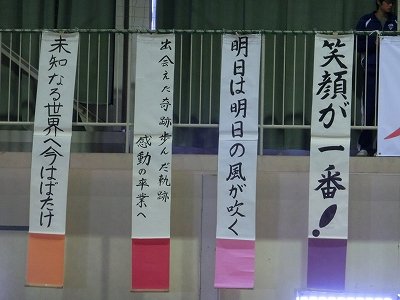 笑顔が一番!
明日は明日の風が吹く
出会えた奇跡歩んだ軌跡
感動の卒業へ
未知なる世界へ今はばたけ